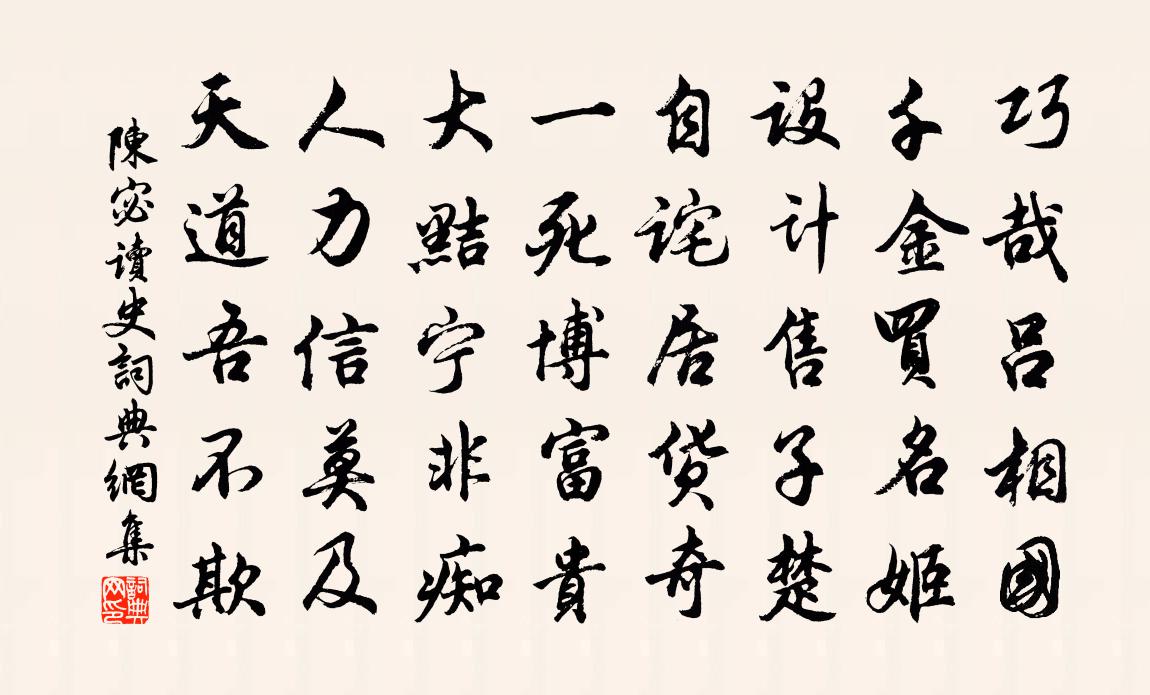 巧哉吕相國
千金買名姬
設计售子楚
自詫居货奇
一死博富貴
大黠宁非痴
人力信莫及
天道吾不欺
陳宓讀史詞典網集
詞典网印